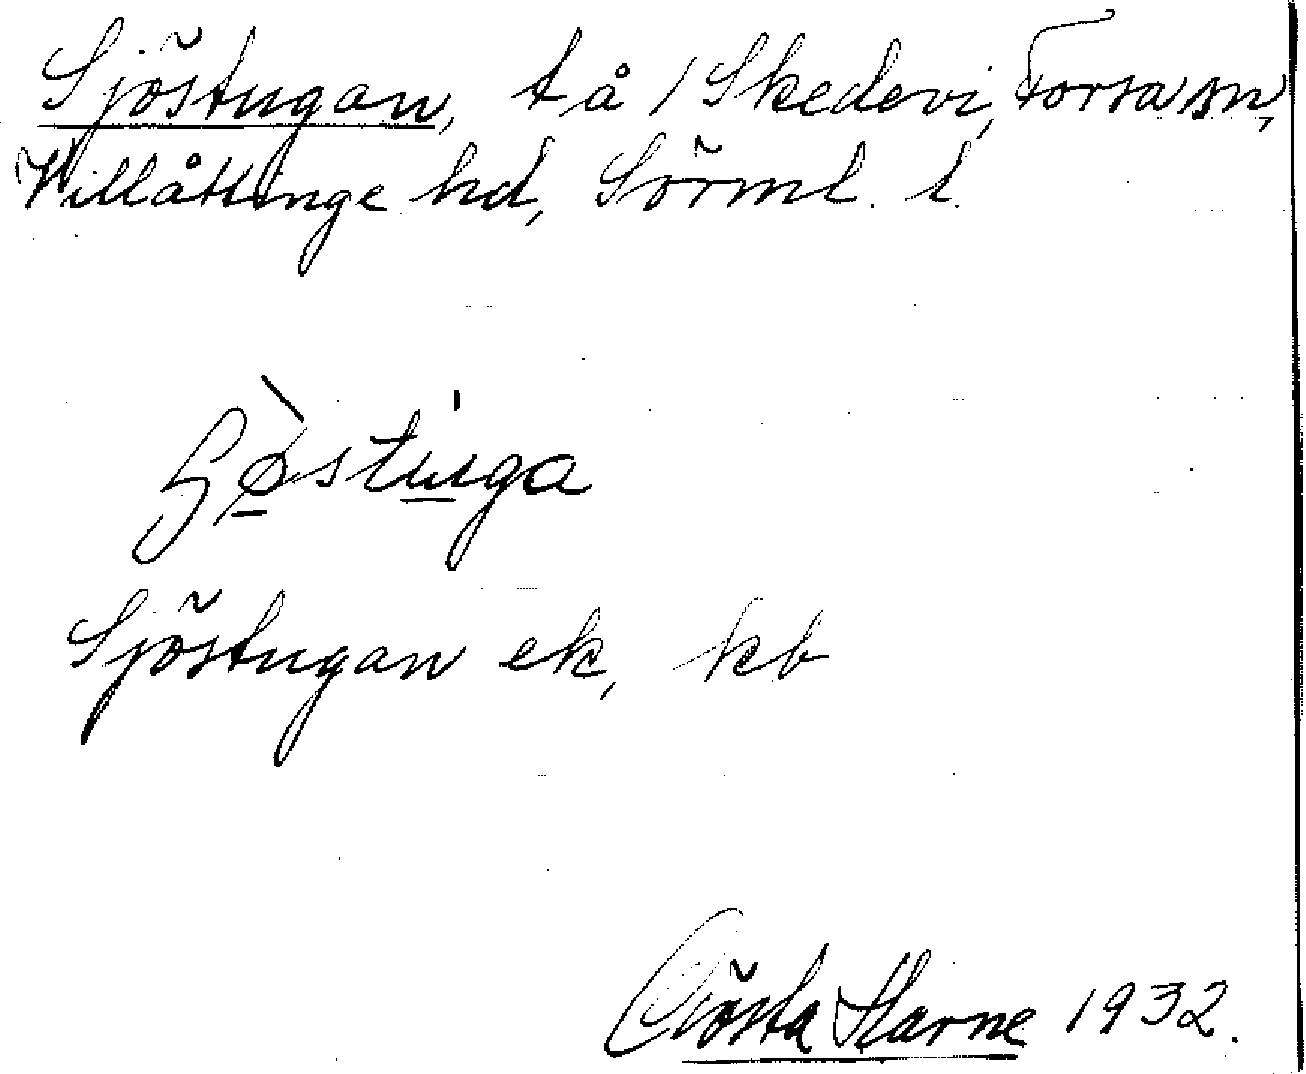 Sjöstugan, t å / Skedevi, Forsa sn,
Villåttinge hd, Sörml. l.
Sjöstugan ek, kb
Gösta Harne 1932.